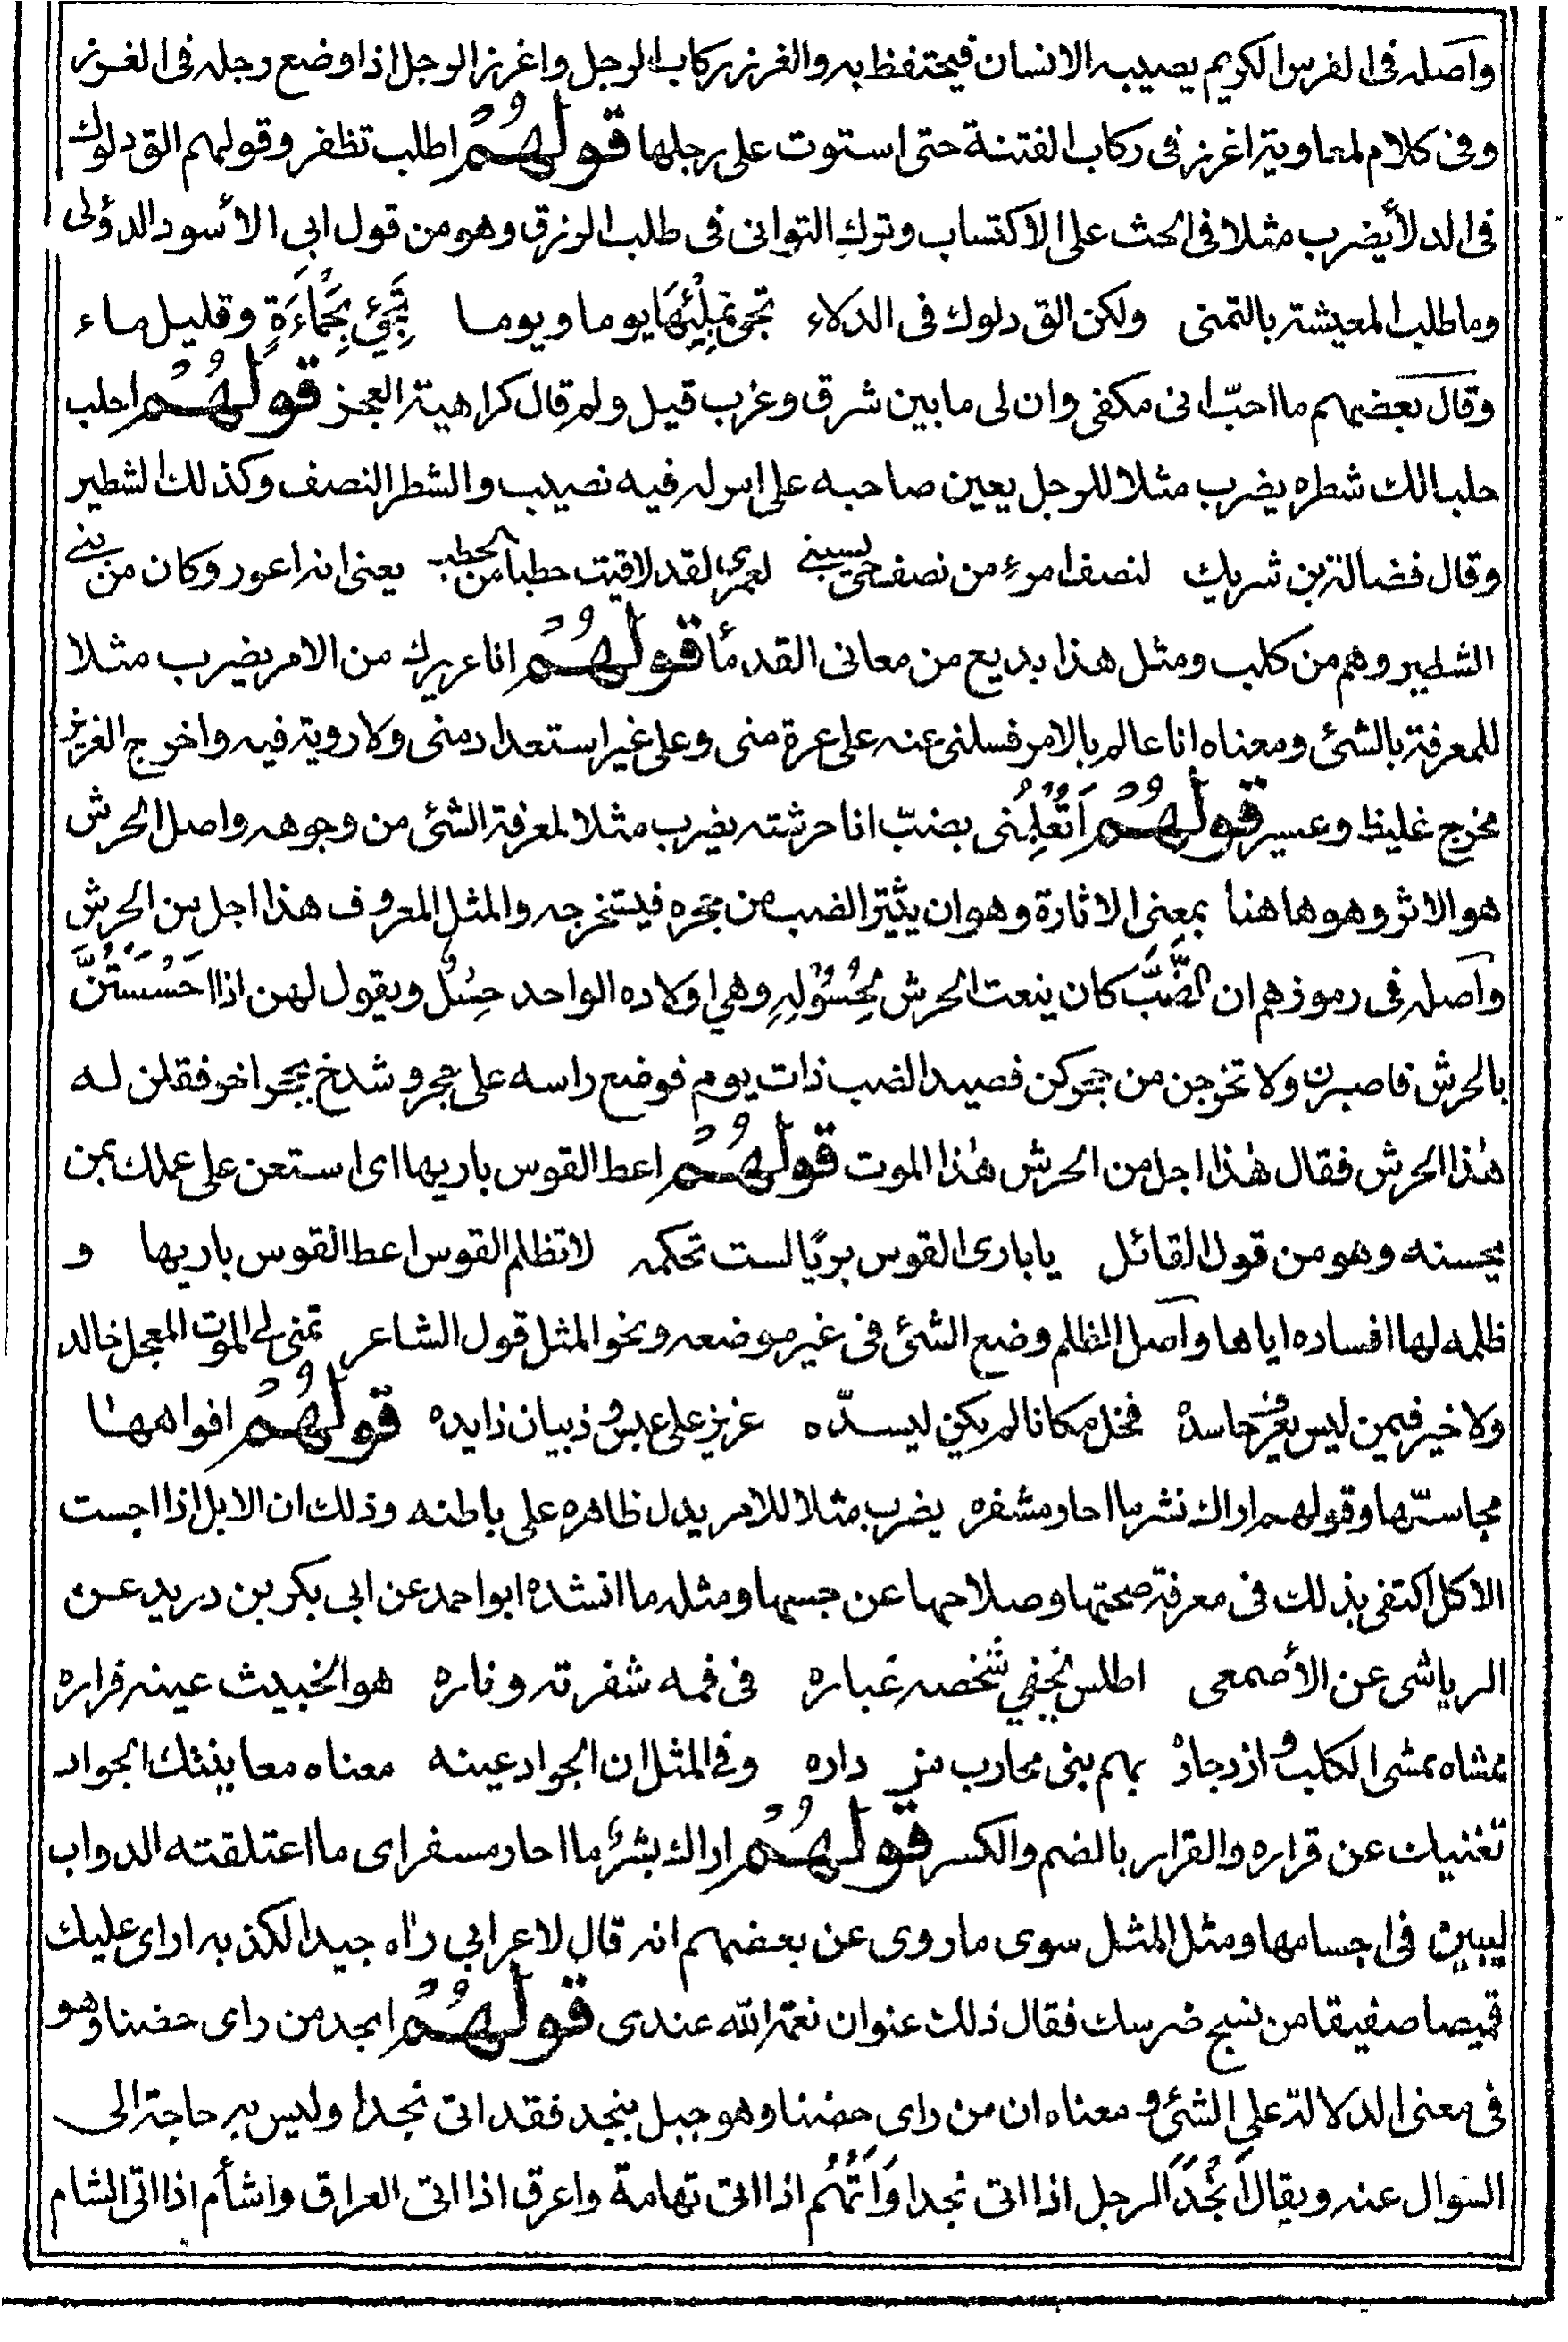 وآصله فى الفرس الكريم يصيبه الانسان فيحتفظ به والغرز ركاب الرجل واغرز الرجل اذا وضع رجله فى الغرز
وفى كلام لمعاوية اغرز فى ركاب الفتنة حتى استوت على رجلها قولهُمْ اطلب تظفر وقولهم الق دلوك
فى الدلأ يضرب مثلا فى الحث على الاكتساب وترك التوانى فى طلب الرزق وهو من قول ابى الأسود الدؤلى
وما طلب المعيشة بالتمنى ولكن الق دلوك فى الدلاء تجى بمِلْئِهَا يوما ويوما تَجِئ بِحَمْاءَةٍ وقليل ماء
وقال بعضهم ما احبّ انى مكفى وان لى ما بين شرق وغرب قيل ولم قال كراهية العجز قولهُمْ احلب
حلبا لك شطره يضرب مثلا للرجل يعين صاحبه على امر له فيه نصيب والشطر النصف وكذلك الشطير
وقال فضالة بن شريك لنصف امرءٍ من نصف حى يسبنى لعمرى لقد لاقيت حطبا من الحطب يعنى انه اعور وكان من بنى
الشطير وهم من كلب ومثل هذا بديع من معانى القدمأ قولهُمْ انا عريرك من الامر يضرب مثلا
للمعرفة بالشئ ومعناه انا عالم بالامر فسلنى عنه على عرة منى وعلى غير استعداد منى ولا روية فيه واخرج الغرير
مخرج غليظ وعسير قولهُمْ اَتُعْلِمُنى بضبّ انا حرشته يضرب مثلا لمعرفة الشئ من وجوهه واصل الحرش
هو الاثر وهو هاهنا بمعنى الاثارة وهو ان يثير الضب من جحره فيستخرجه والمثل المعروف هذا اجل من الحرش
وآصله فى رموزهم ان الضَّبَّ كان ينعت الحرش لِحُسُوْلِهِ وهي اولاده الواحد حِسْلٌ ويقول لهن اذا احَسَسْتُنَّ
بالحرش فاصبرن ولا تخرجن من جحركن فصيد الضب ذات يوم فوضع راسه على حجر وشدخ بحجر اخر فقلن له
هٰذا الحرش فقال هٰذا اجل من الحرش هٰذا الموت قولهُمْ اعط القوس باريها اى استعن على عملك بمن
يحسنه وهو من قول القائل يا بارى القوس بريًا لست تحكمه لا تظلم القوس اعط القوس باريها و
ظلمه لها افساده اياها وآصل الظلم وضع الشئ فى غير موضعه ونحو المثل قول الشاعر تمنى لي الموت المعجل خالد
ولا خير فيمن ليس يعرف حاسدهْ فخل مكانا لم يكن ليسدّه عزيز على عبس وذبيان ذايده قولهُمْ افواهها
مجاستّها وقولهم اراك نشر ما احار مشفره يضرب مثلا للامر يدل ظاهره على باطنه وذلك ان الابل اذا اجست
الاكل اكتفى بذلك فى معرفة صحتها وصلاحها عن جسها ومثله ما انشده ابو احمد عن ابى بكر بن دريد عن
الرياشى عن الأصمعى اطلس يخفي شخصه غباره فى فمه شفرته وناره هو الخبيث عينه فراره
ممشاه ممشى الكلب وازدجارهْ بهم بنى محارب مز داره وفى المثل ان الجواد عينه معناه معاينتك الجواد
تغنيك عن قراره والقرار بالضم والكسر قولهُمْ اراك بشرٌ ما احار مسفر اى ما اعتلقته الدواب
ليبين فى اجسامها ومثل المثل سوى ما روى عن بعضهم انه قال لاعرابي رأه جيد الكذبه ارى عليك
قميصا صفيقا من نسج ضرسك فقال ذلك عنوان نعمة الله عندى قولهُمْ انجد من راى حضنا وهو
فى معنى الدلالة على الشئ و معناه ان من راى حضنا وهو جبل بنجد فقد اتى نجدا وليس به حاجة الى
السؤال عنه ويقال اَنْجَدَ الرجل اذا اتى نجدا وَاَتْهُم اذا اتى تهامة واعرق اذا اتى العراق واشأم اذا اتى الشام